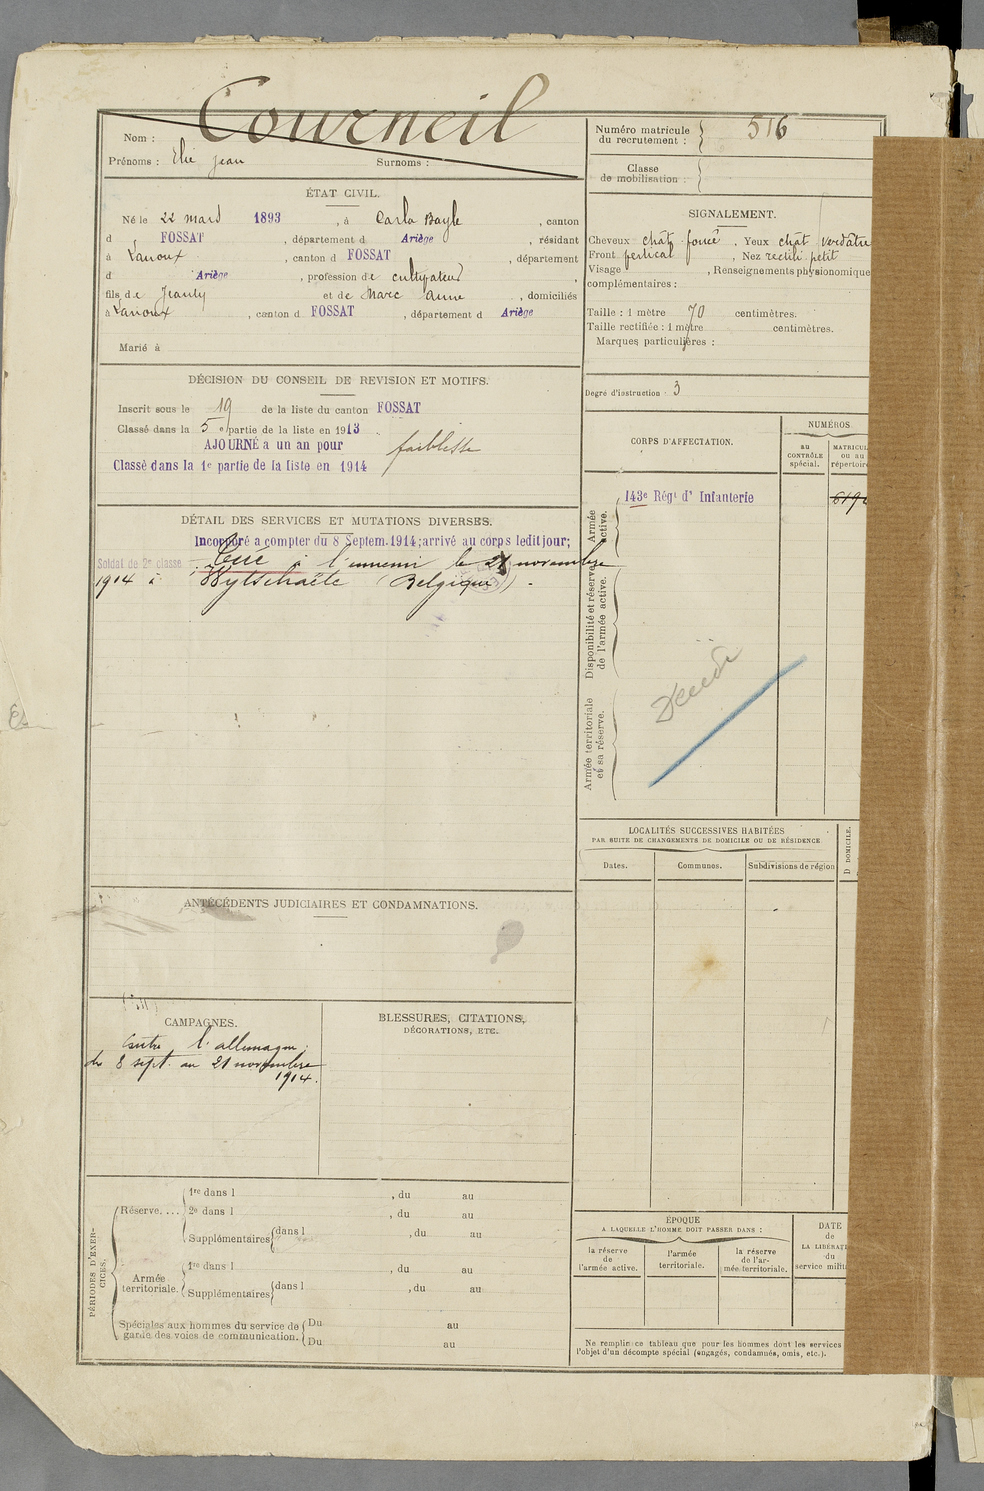 Nom : Courneil
Prénoms : Elie Jean Surnoms :
Numéro matricule du recrutement : 516
Classe de mobilisation :
ÉTAT CIVIL.
Né le 22 mars 1893, à Carla Bayle, canton
d FOSSAT, département d Ariège, résidant
à Lanoux, canton d FOSSAT, département
d Ariège, profession de cultivateur
fils de Jeanty et de Marc Anne, domiciliés
à Lanoux, canton d FOSSAT, département d Ariège
Marié à
SIGNALEMENT.
Cheveux chât foncé. Yeux chat verdâtre
Front vertical, Nez rectili petit
Visage, Renseignements physionomiques
complémentaires :
Taille : 1 mètre 70 centimètres.
Taille rectifiée : 1 mètre centimètres.
Marques particulières :
DÉCISION DU CONSEIL DE REVISION ET MOTIFS.
Inscrit sous le 19 de la liste du canton FOSSAT
Classé dans la 5e partie de la liste en 1913.
AJOURNÉ a un an pour faiblesse
Classé dans la 1e partie de la liste en 1914
Degré d'instruction : 3
CORPS D'AFFECTATION.
NUMÉROS
au CONTRÔLE spécial.
MATRICUL ou au répertoire
Armée active.
143e Régt d' Infanterie
Disponibilité et réserve de l'armée active.
Armée territoriale et sa réserve.
DÉTAIL DES SERVICES ET MUTATIONS DIVERSES.
Incorporé a compter du 8 Septem. 1914; arrivé au corps ledit jour;
Soldat de 2e classe. Tué à l'ennemi le 21 novembre
1914 à Wytschaële (Belgique).
LOCALITÉS SUCCESSIVES HABITÉES
PAR SUITE DE CHANGEMENTS DE DOMICILE OU DE RÉSIDENCE.
Dates. Communes. Subdivisions de région
D DOMICILE.
ANTÉCÉDENTS JUDICIAIRES ET CONDAMNATIONS.
CAMPAGNES.
Contre l'allemagne
du 8 sept. au 21 novembre
1914.
BLESSURES, CITATIONS,
DÉCORATIONS, ETC.
PÉRIODES D'EXERCICES.
Réserve....
1re dans l , du au
2e dans l , du au
Supplémentaires dans l , du au
Armée territoriale.
1re dans l , du au
Supplémentaires dans l , du au
Spéciales aux hommes du service de garde des voies de communication.
Du au
Du au
ÉPOQUE
A LAQUELLE L'HOMME DOIT PASSER DANS :
la réserve de l'armée active.
l'armée territoriale.
la réserve de l'armée territoriale.
DATE
de
LA LIBÉRAT
du
service milit
Ne remplir ce tableau que pour les hommes dont les services
l'objet d'un décompte spécial (engagés, condamnés, omis, etc.).